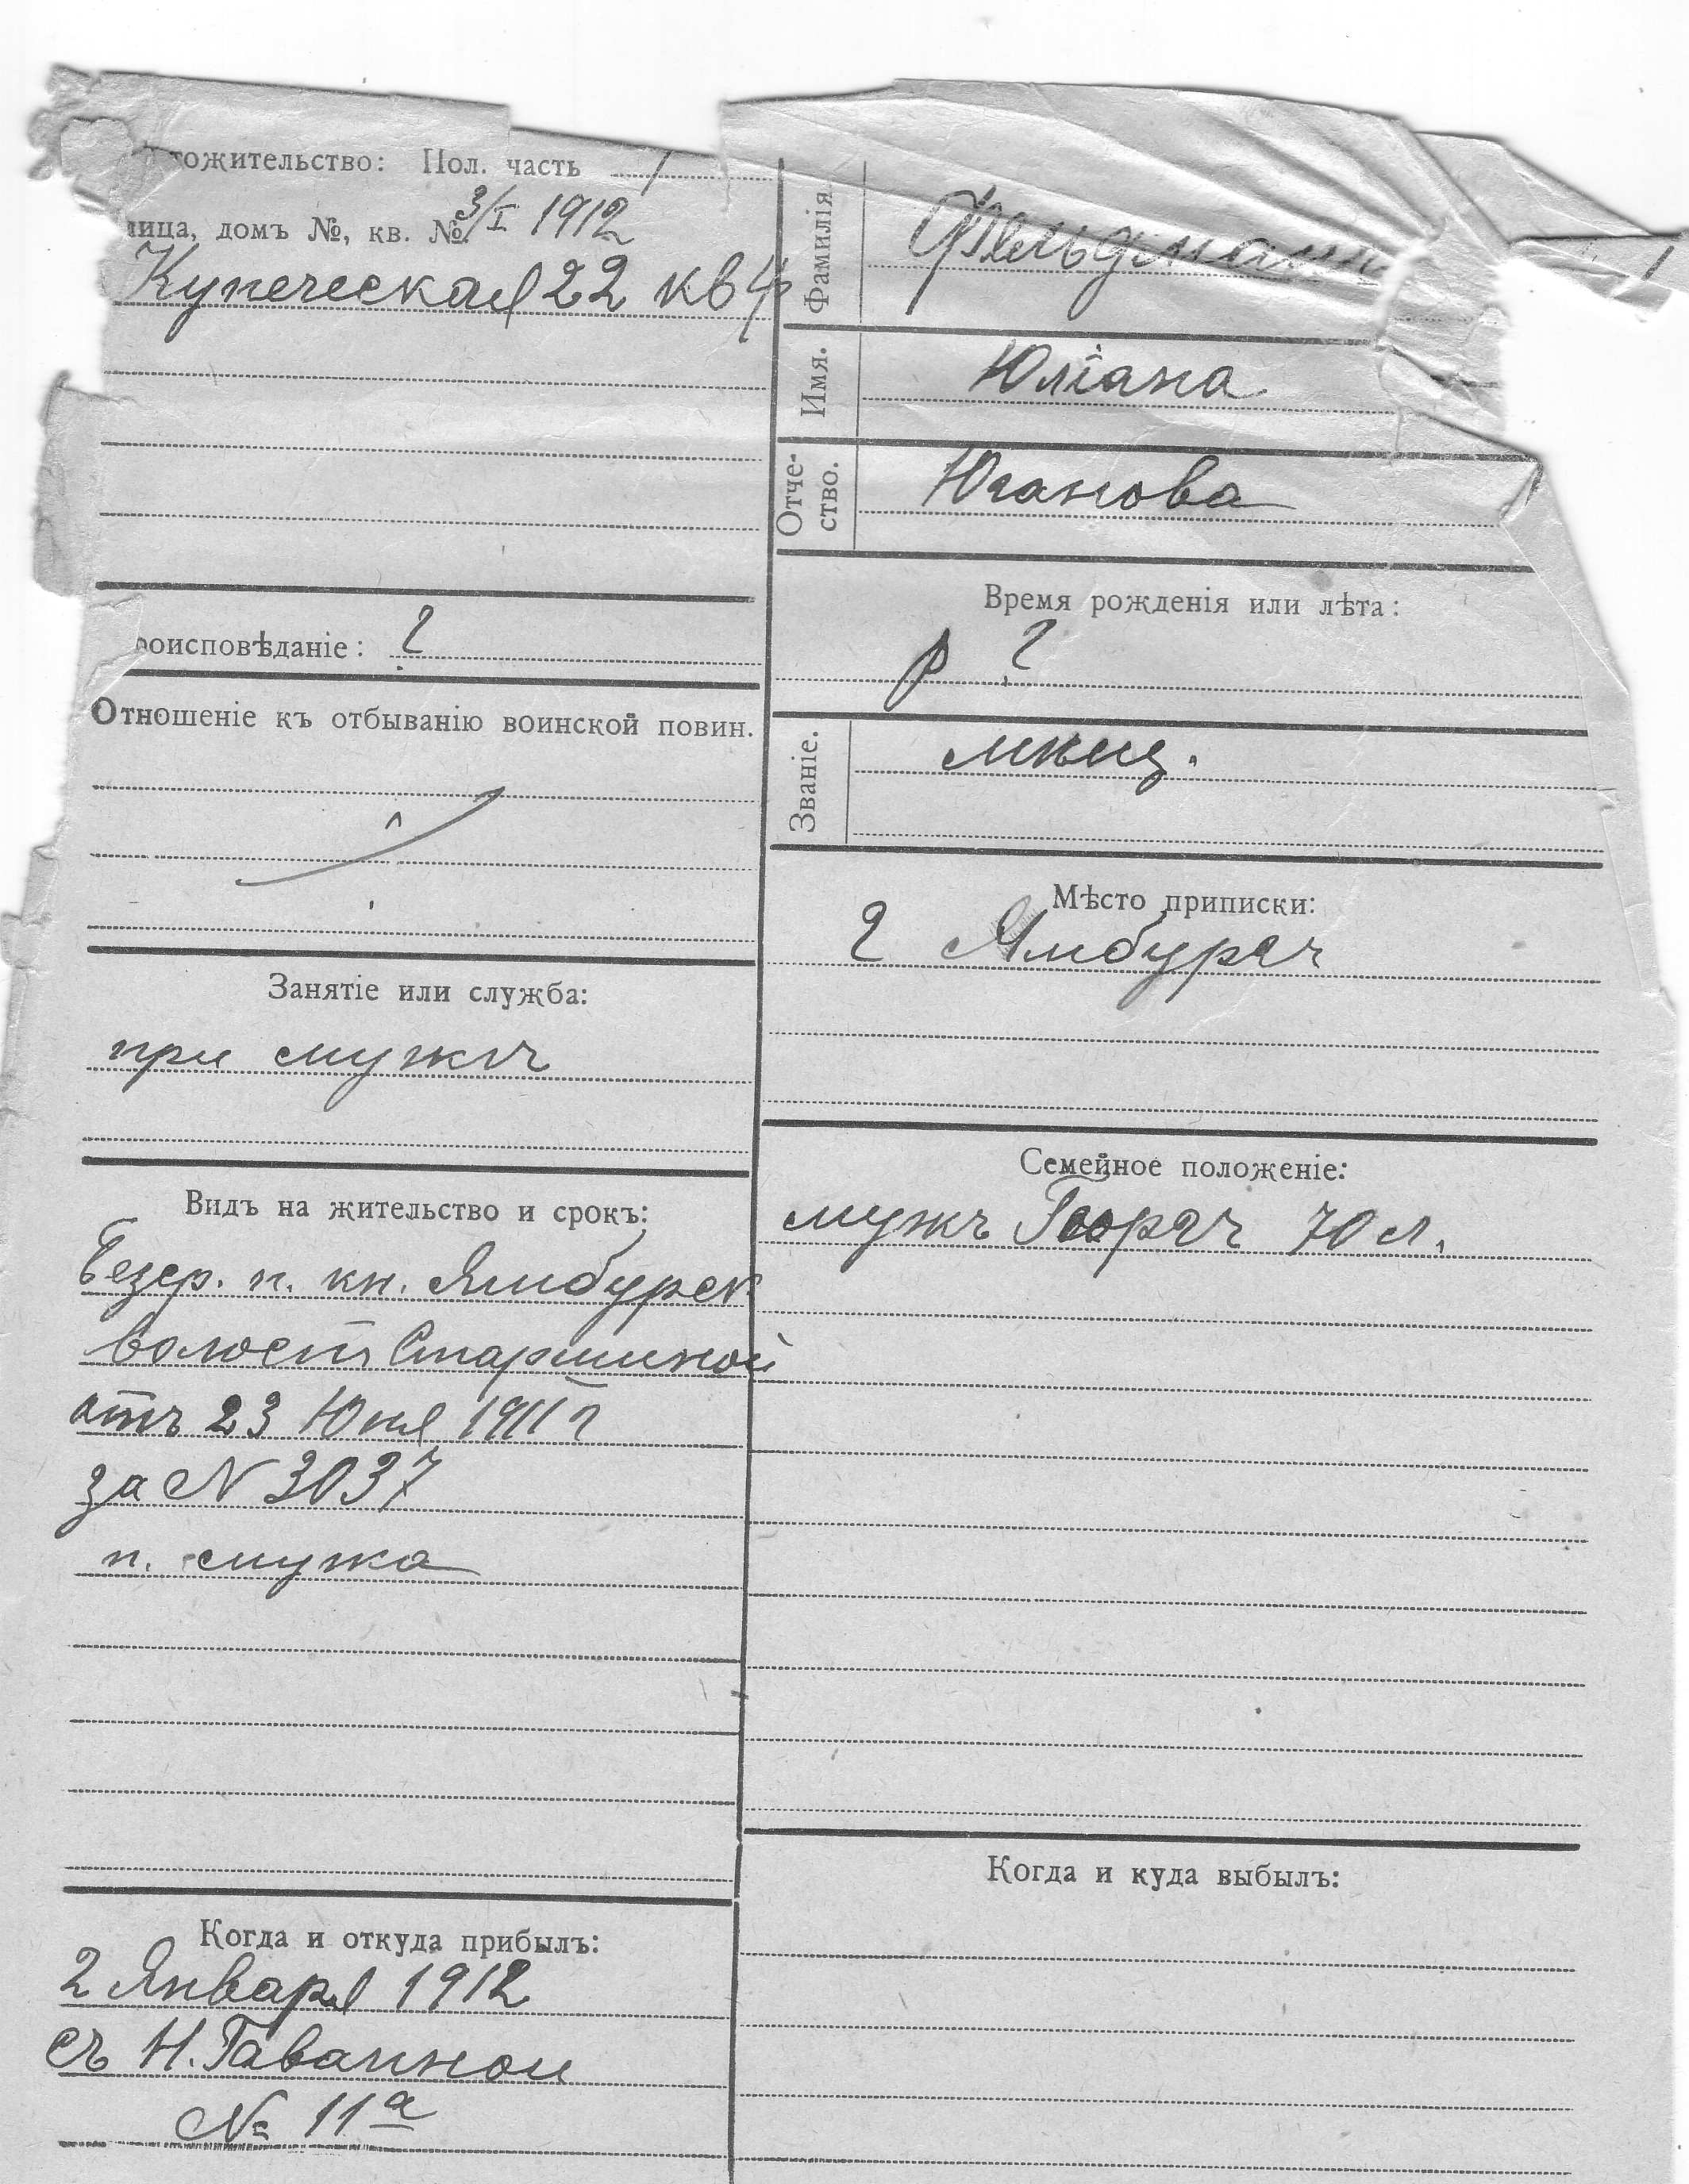 тожительство: Пол. часть /
лица, домъ №, кв. № 3/I 1912
Купеческая 22 кв 4
роисповѣданіе: ?
Отношеніе къ отбыванію воинской повин.
Занятіе или служба:
при мужѣ
Видъ на жительство и срокъ:
Безср. п. кн. Ямбургск
волостн Старшиной
отъ 23 Юня 1911 г
за N 3037
п. мужа
Когда и откуда прибылъ:
2 Января 1912
съ Н. Гаванной
№ 11а
Фамилія
Фельдманъ
Имя.
Юліана
Отче-
ство.
Юганова
Время рожденія или лѣта:
р ?
Званіе.
мѣщ.
Мѣсто приписки:
г Ямбургъ
Семейное положеніе:
мужъ Георгъ 70 л.
Когда и куда выбылъ: